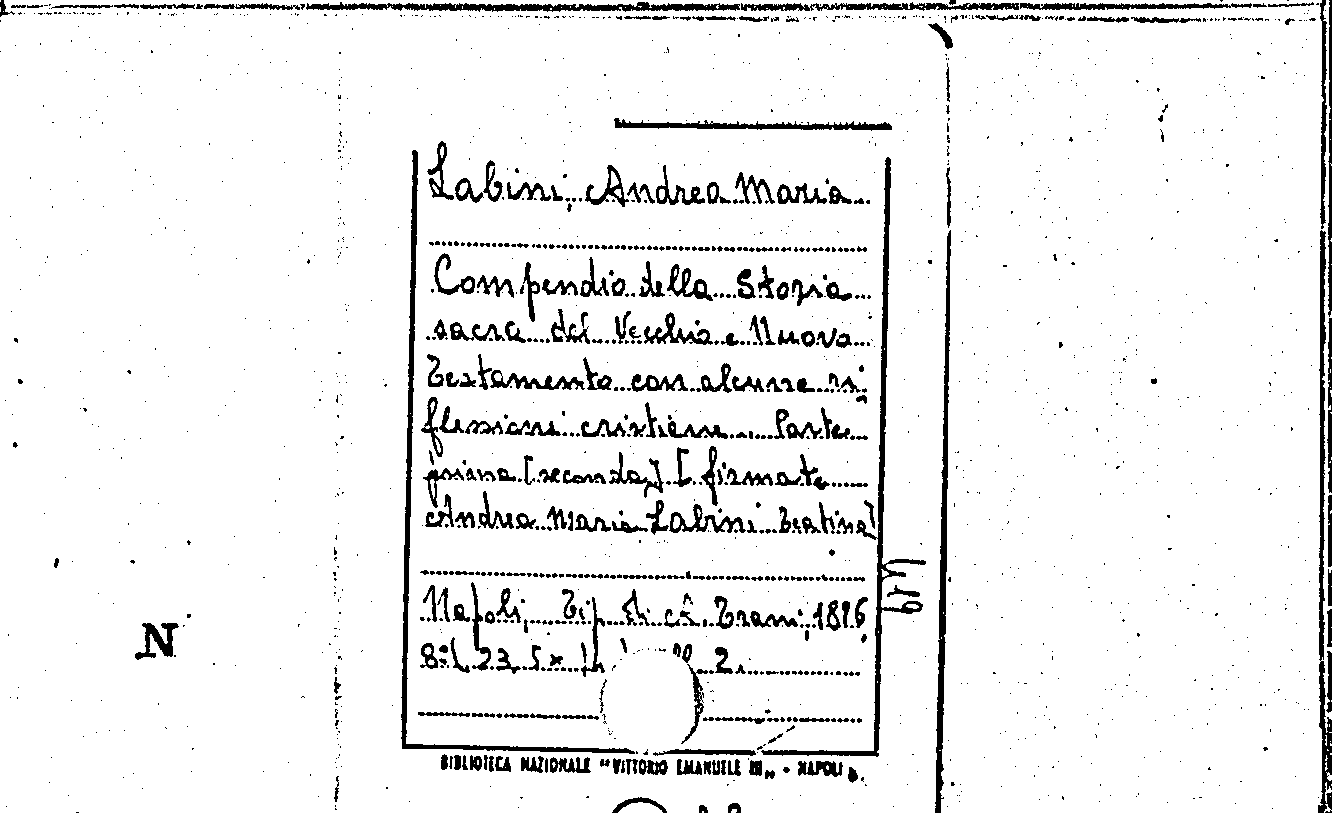 Labini, Andrea Maria
Compendio della Storia
sacra del Vecchio e Nuovo
Testamento con alcune ri
flessioni cristiane. Parte
prima [seconda] [firmato
Andrea Maria Labini Teatino]
Napoli, Tip. di A. Trani, 1826
8° (23,5x 2.
N
BIBLIOTECA NAZIONALE "VITTORIO EMANUELE III„ - NAPOLI